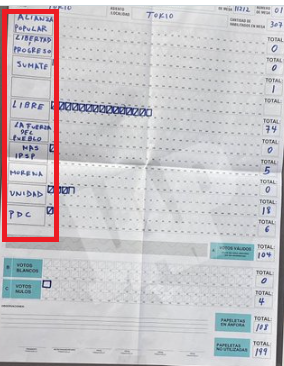 TOKIO
TOKIO
DE MESA 11212
01
307
ALIANZA
POPULAR
TOTAL
0
LIBERTAD
PROGRESO
TOTAL
0
SUMATE
TOTAL
1
TOTAL
LIBRE
TOTAL
74
LA FUERZA
DEL
PUEBLO
TOTAL
0
MAS
IPSP
TOTAL
5
MORENA
TOTAL
0
UNIDAD
TOTAL
18
PDC
TOTAL
6
VOTOS VÁLIDOS
TOTAL
104
B VOTOS
BLANCOS
TOTAL
0
C VOTOS
NULOS
TOTAL
4
PAPELETAS
EN ÁNFORA
TOTAL
108
PAPELETAS
NO UTILIZADAS
TOTAL
199